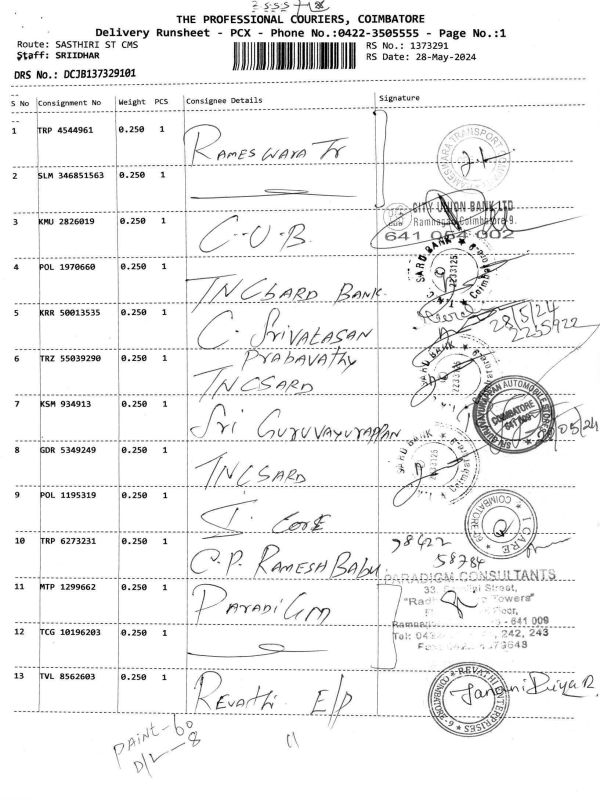 THE PROFESSIONAL COURIERS, COIMBATORE
Delivery Runsheet - PCX - Phone No.:0422-3505555 - Page No.:1
Route: SASTHIRI ST CMS
RS No.: 1373291
Staff: SRIIDHAR
RS Date: 28-May-2024
DRS No.: DCJB137329101
S No Consignment No Weight PCS Consignee Details Signature
1 TRP 4544961 0.250 1 RAMESWARA Tr
2 SLM 346851563 0.250 1
3 KMU 2826019 0.250 1 C.U.B.
CITY UNION BANK LTD
Ramnagar Coimbatore-9.
641 054 002
4 POL 1970660 0.250 1 TNCSARD BANK
SARD BANK
2233125
5 KRR 50013535 0.250 1 C. SRIVATASAN
28/5/24
2235922
6 TRZ 55039290 0.250 1 Prabavathy
TNCSARD
SARD BANK
2233125
7 KSM 934913 0.250 1 Sri GURUVAYURAPPAN
SRI GURUVAYURAPPAN AUTOMOBILE STORES
COIMBATORE
641 009
05/24
8 GDR 5349249 0.250 1 TNCSARD
SARD BANK
2233125
9 POL 1195319 0.250 1 I. CARE
I CARE
COIMBATORE
10 TRP 6273231 0.250 1 C.P. RAMESH BABU
98422
58784
11 MTP 1299662 0.250 1 PARADIGM
PARADIGM CONSULTANTS
Street,
Towers"
Floor,
- 641 009
242, 243
12 TCG 10196203 0.250 1
13 TVL 8562603 0.250 1 REVATHI E/P
REVATHI ENTERPRISES
COIMBATORE
Janani Priya R
PAINT-60
D/L-8